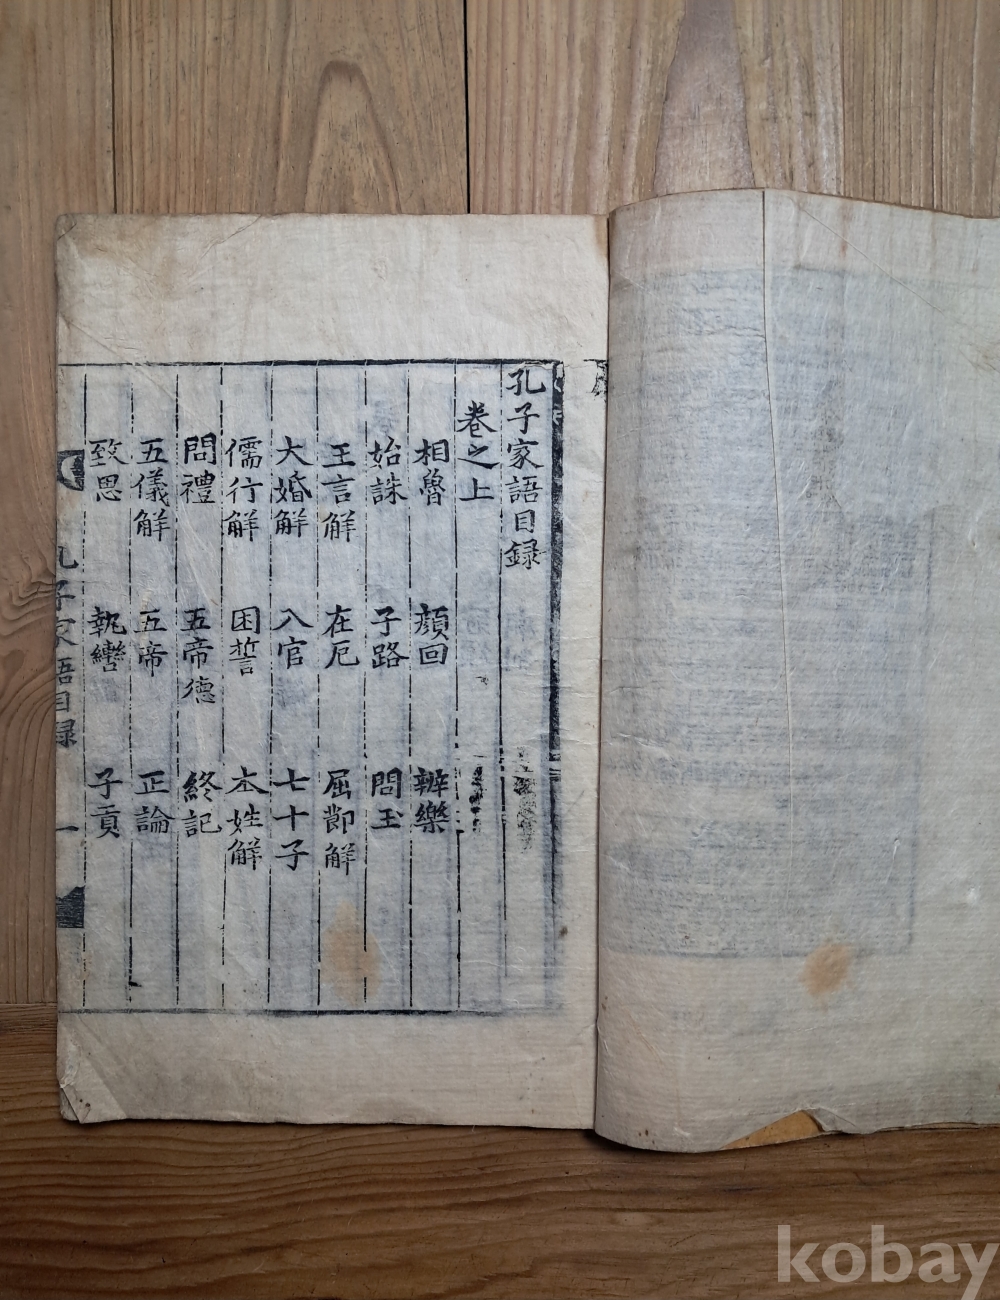 孔子家語目録
卷之上
相魯 顔回 辦樂
始誅 子路 問玉
王言解 在厄 屈節解
大婚解 入官 七十子
儒行解 困誓 本姓解
問禮 五帝德 終記
五儀解 五帝 正論
致思 執轡 子貢
孔子家語目録 一
kobay